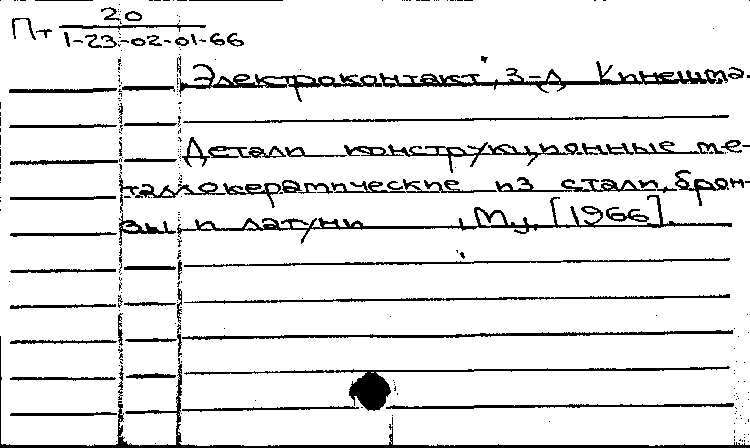 Пт 20
1-23-02-01-66
"Электроконтакт", з-д Кинешма.
Детали конструкционные ме-
таллокерамические из стали, брон-
зы и латуни , М., [1966].